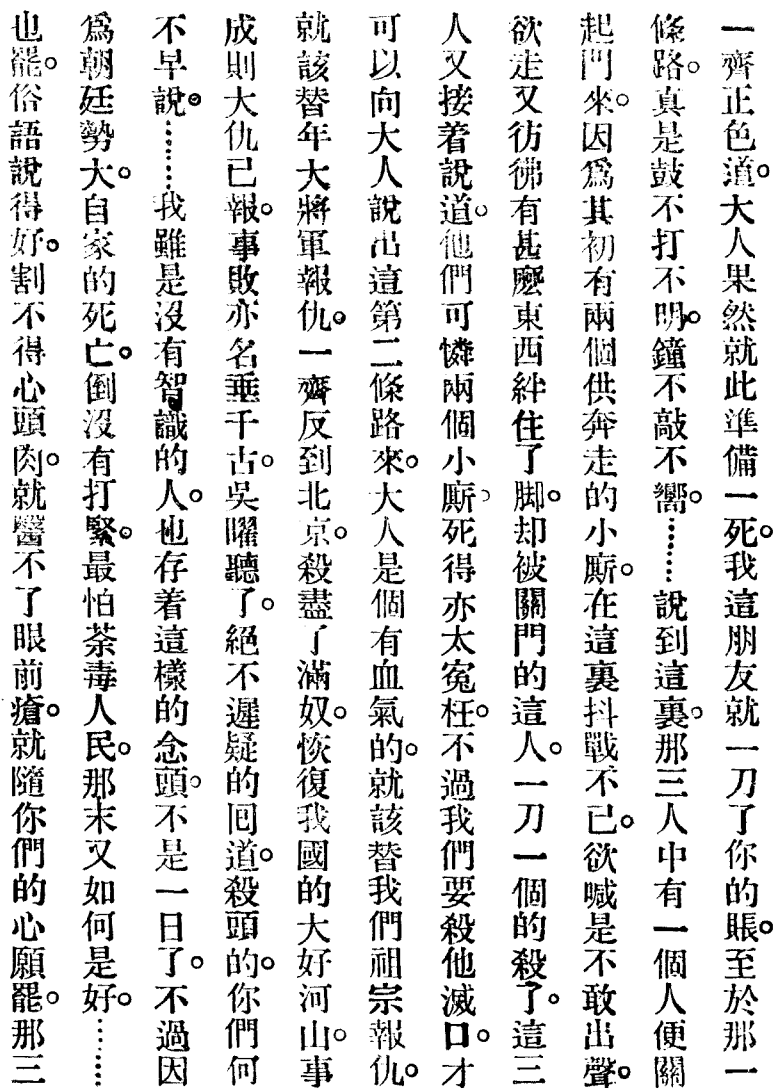 一齊正色道。大人果然就此準備一死。我這朋友就一刀了你的賬。至於那一
條路。真是鼓不打不明。鐘不敲不響。……說到這裏。那三人中有一個人便關
起門來。因爲其初有兩個供奔走的小廝。在這裏抖戰不已。欲喊是不敢出聲。
欲走又彷彿有甚麼東西絆住了脚。却被關門的這人。一刀一個的殺了。這三
人又接着說道。他們可憐兩個小廝。死得亦太寃枉。不過我們要殺他滅口。才
可以向大人說出這第二條路來。大人是個有血氣的。就該替我們祖宗報仇。
就該替年大將軍報仇。一齊反到北京。殺盡了滿奴。恢復我國的大好河山。事
成則大仇已報。事敗亦名垂千古。吳曜聽了。絕不遲疑的回道。殺頭的。你們何
不早說。……我雖是沒有智識的人。也存着這樣的念頭。不是一日了。不過因
爲朝廷勢大。自家的死亡。倒沒有打緊。最怕荼毒人民。那末又如何是好。……
也罷。俗語說得好。割不得心頭肉。就醫不了眼前瘡。就隨你們的心願罷。那三